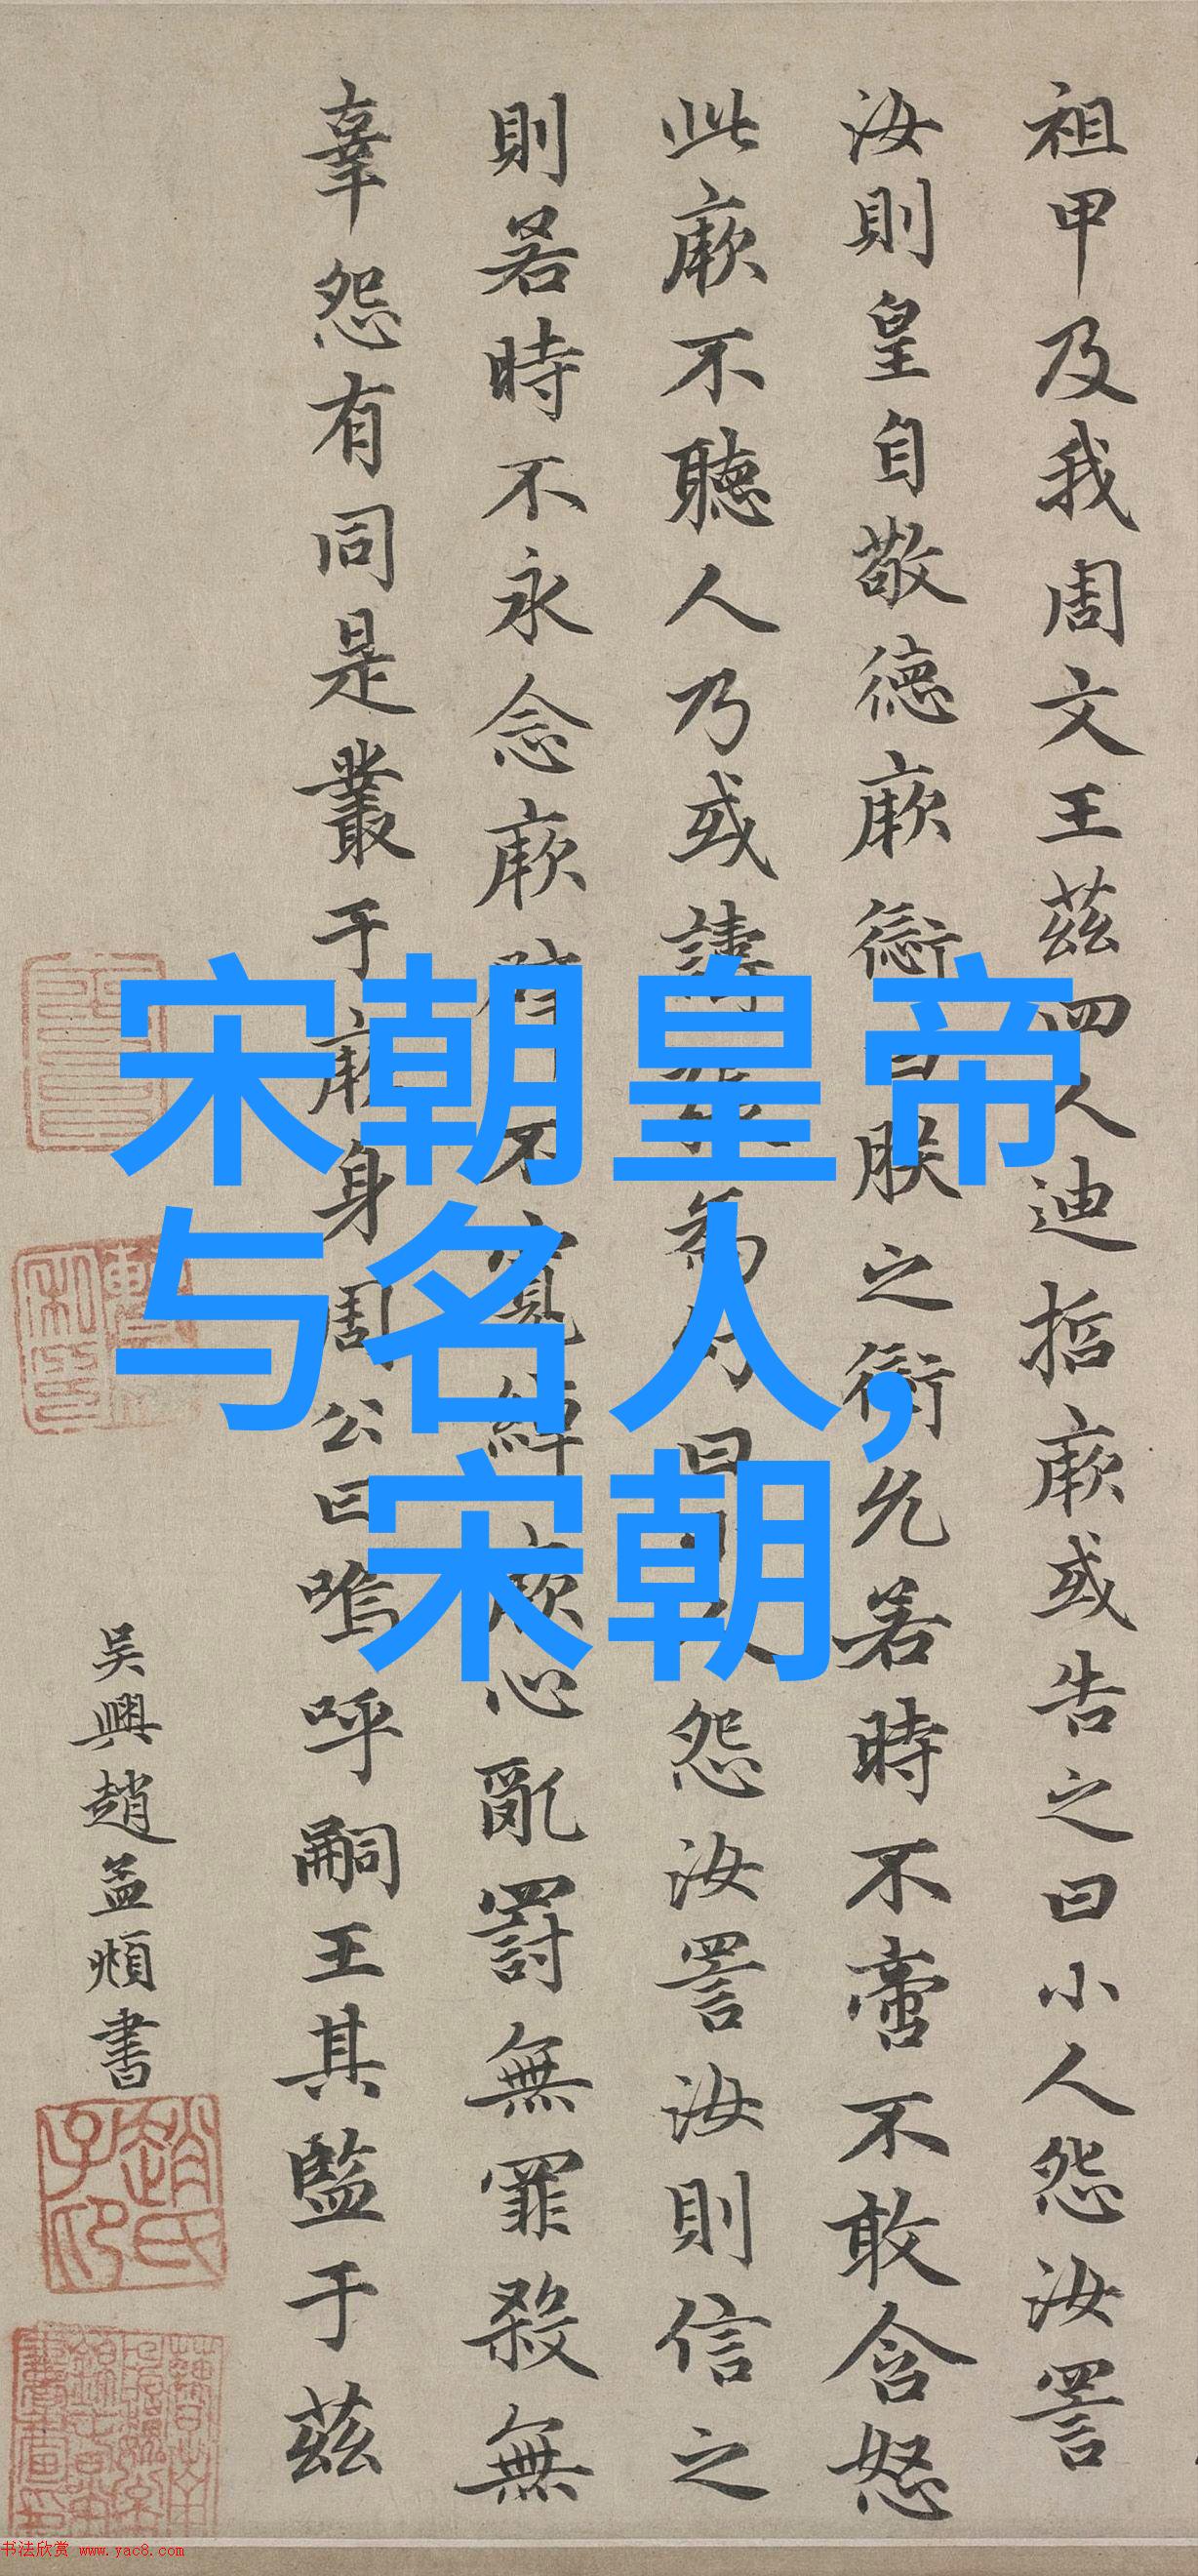 宋朝皇帝
与名人,
宋朝
祖甲及我周文王茲四人迪哲厥或告之曰小人怨汝詈
汝則皇自敬德厥愆曰朕之愆允若時不啻不敢含怒
此厥不聽人乃或譸張為幻曰小人怨汝詈汝則信之
則若時不永念厥辟不寬綽厥心亂罰無罪殺無
辜怨有同是叢于厥身周公曰嗚呼嗣王其監于茲
吳興趙孟頫書
趙氏子印
书法欣赏 www.yac8.com